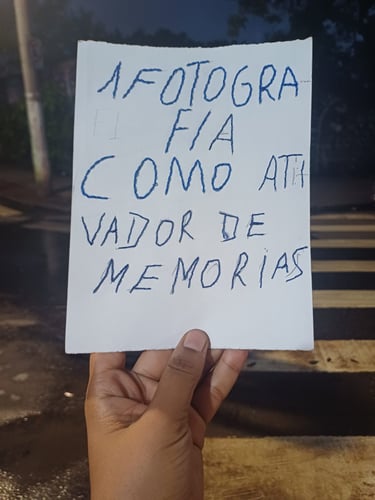 A FOTOGRA
FIA
COMO ATI
VADOR DE
MEMORIAS